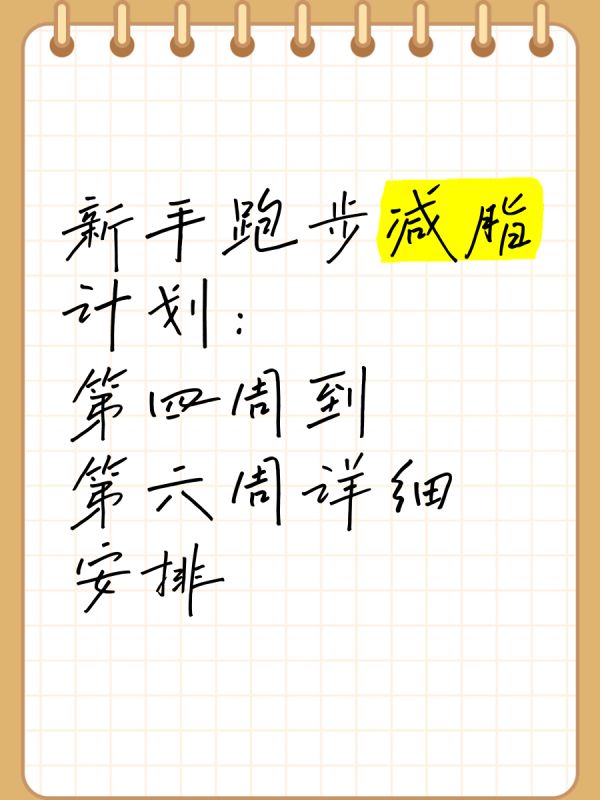 新手跑步减脂
计划：
第四周到
第六周详细
安排